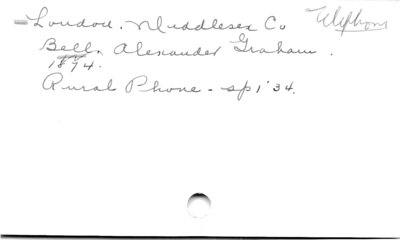 London. Middlesex Co
Telephone
Bell, Alexander Graham.
1874.
Rural Phone - sp 1'34.